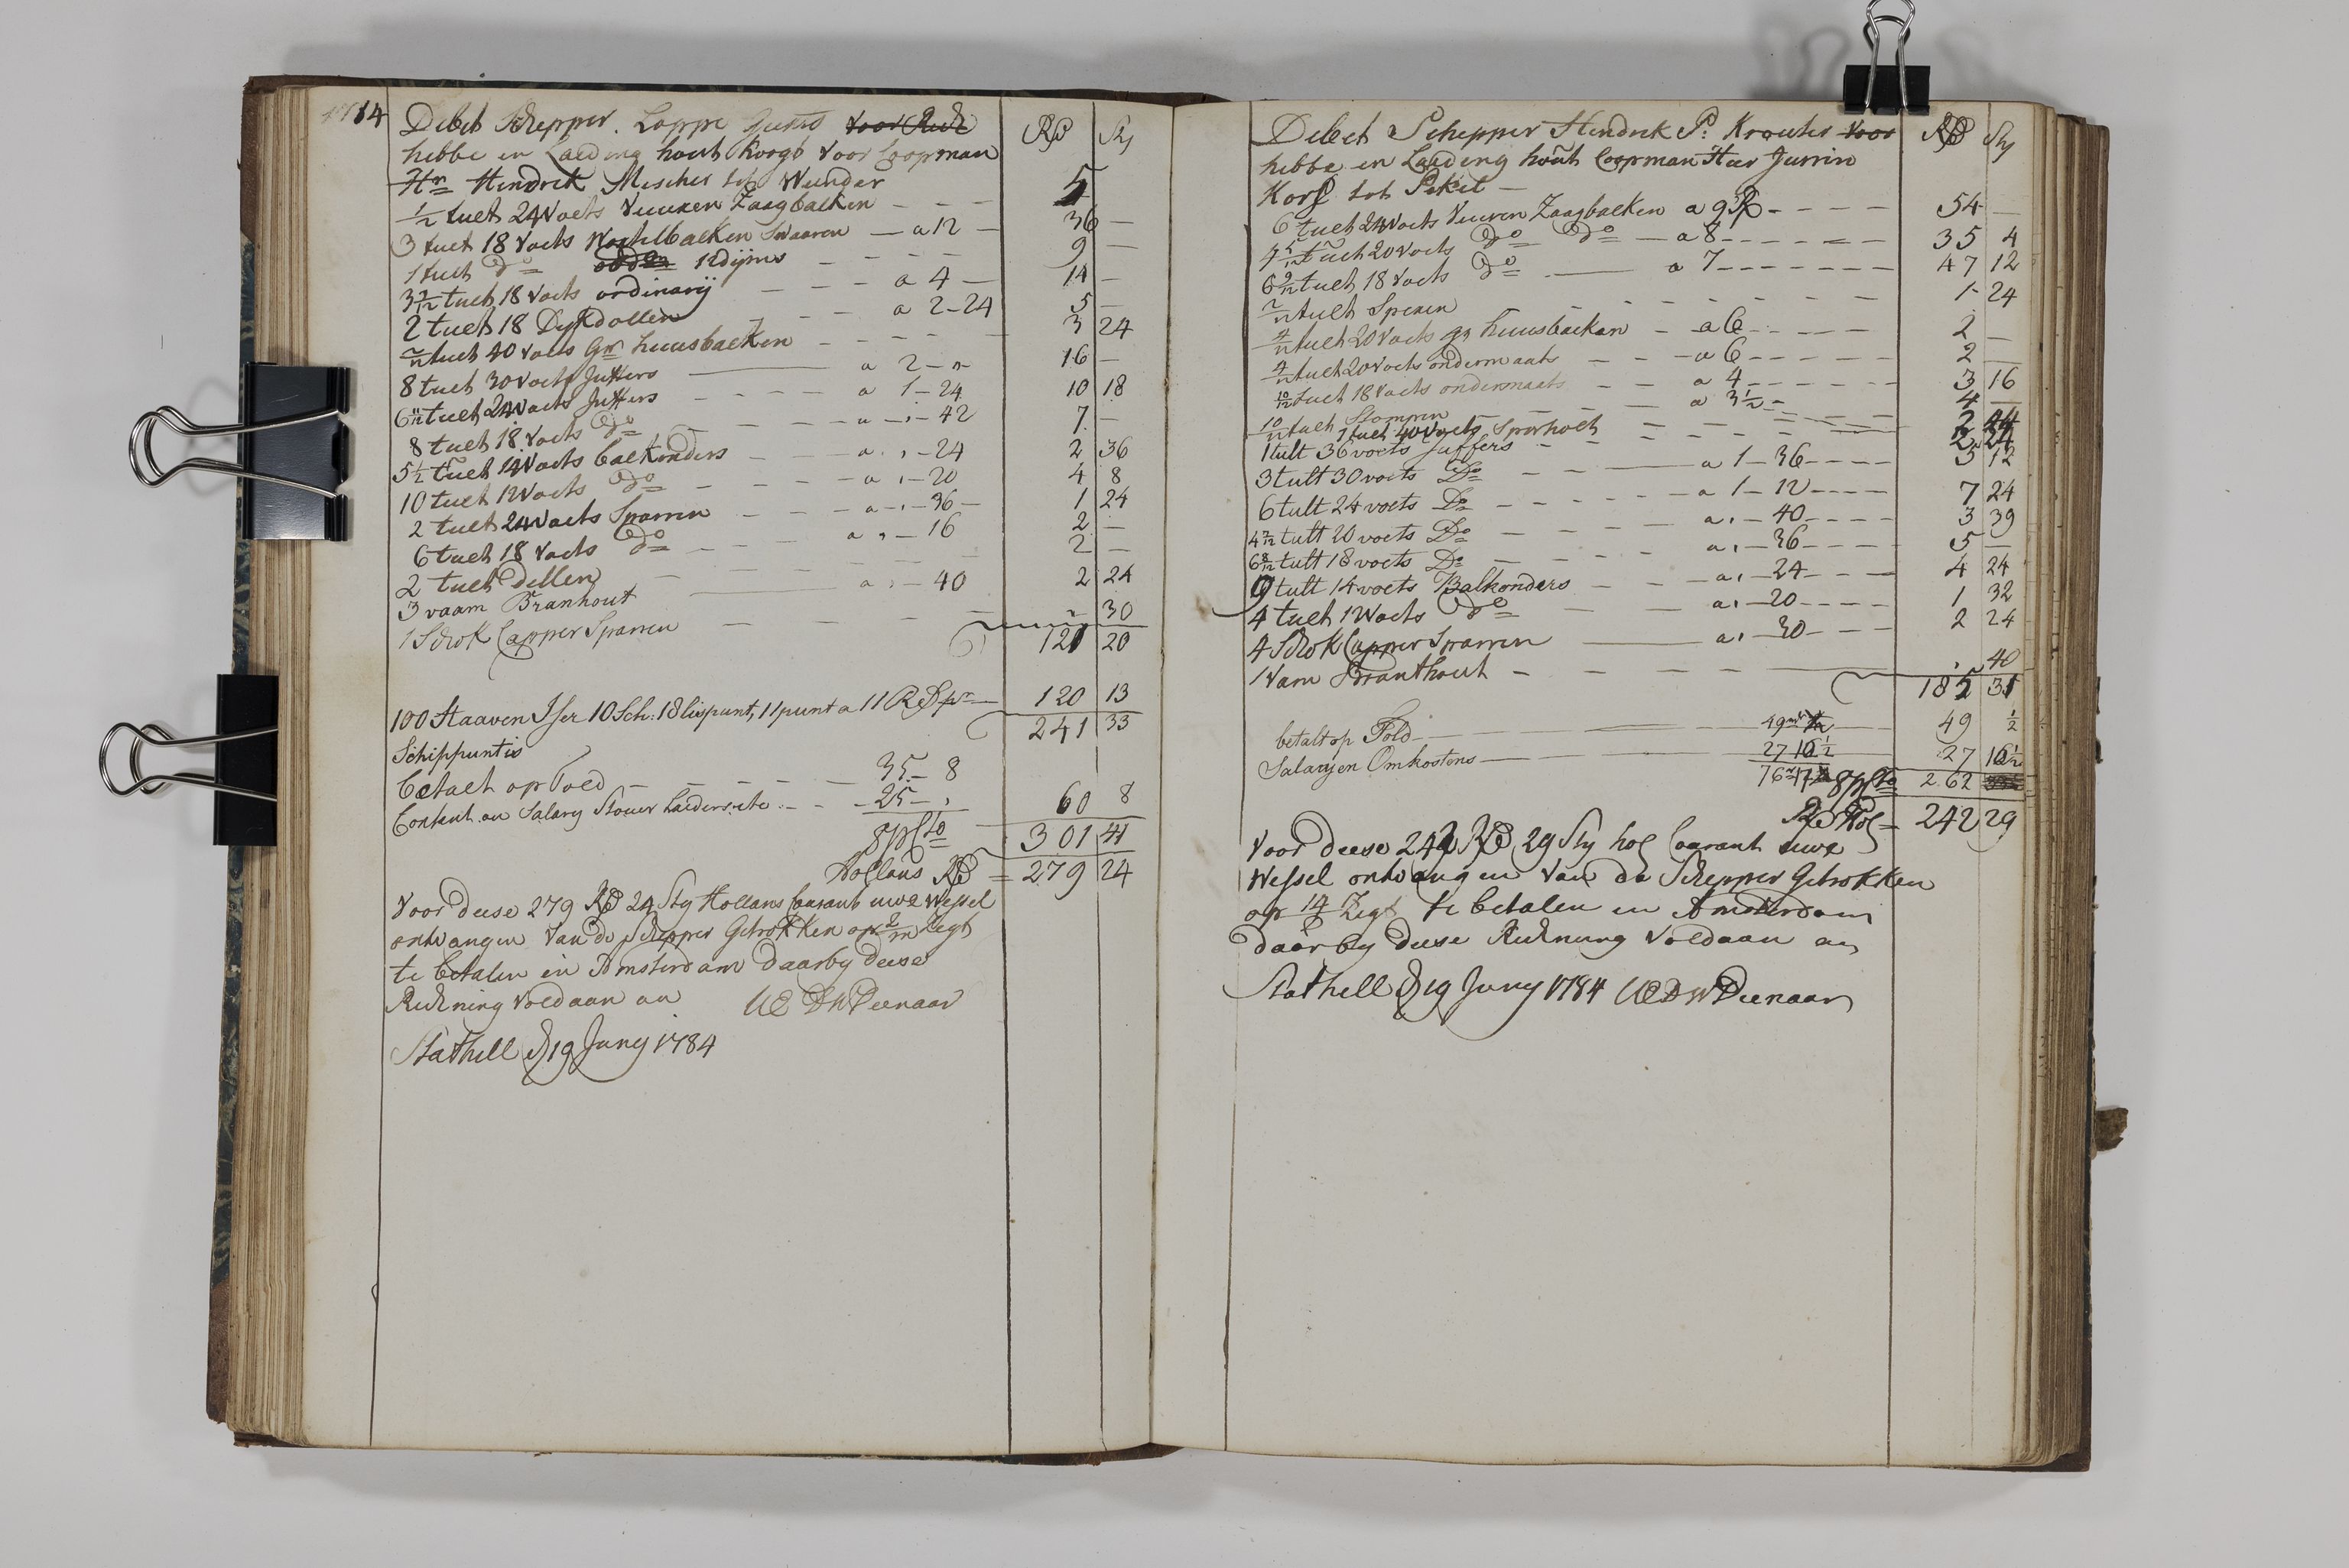 1784
Debet Schepper. Loppe voor Reek Rd Sty
hebbe in Laeding hout koogt voor Coopman
Hr Hendrik Mescher tot Wunder
1/2 tuelt 24 voets vuuren Zaagbalken - - - 5
3 tuelt 18 voets Wostelbalken Swaaren - a 12 - 36 -
1 tuelt do 12 dijms - - - - 9 -
3 7/12 tuelt 18 voets ordinarij - - - a 4 - 14 -
2 tuelt 18 Dykdollen - - - a 2-24 5 -
tuelt 40 voets Gr huusbalken - - - - 3 24
8 tuelt 30 voets Juffers — a 2 - 16 -
6 11/12 tuelt 24 voets Juffers - - - - a 1-24 10 18
8 tuelt 18 voets do - - - a -,- 42 7 -
5 1/2 tuelt 14 voets balkonders - - - a , , - 24 2 36
10 tuelt 12 voets do - - - - a , - 20 4 8
2 tuelt 24 voets Sparren - - - a -,- 36 - 1 24
6 tuelt 18 voets do - - - a , - 16 2 -
2 tuelt dellen - - - - 2 -
3 vaam Branhout — a , - 40 2 24
1 Schok Capper Sparren - - - - 30
121 20
100 Staaven Iser 10 Sch: 18 lispunt, 11 punt a 11 Rd pr 120 13
Schippuntis 241 33
betalt op Told - - - - 35 - 8
Contant an Salary Stouer haldersite - - 25 - , 60 8
8 p Cto 301 41
Hollans Rd = 279 24
Voor deese 279 Rd 24 Sty Hollans Courant uwe Wessel
ontvangen van de Schepper Getrokken op 2/m Zegt
te betalen in Amsterdam daarby deese
Reekning voldaan an UE DW Deenaar
Stathell d 19 Juny 1784
Debet Schepper Hendrek P: Krouter voor Rd Sty
hebbe in Laeding hout Coopman Heer Jurrin
Korf tot Pekel -
6 tuelt 24 voets vuuren Zaagbalken a 9 Rd - - - - 54 -
4 5/12 tuelt 20 voets do do - a 8 - - - - 35 4
6 9/12 tuelt 18 voets do — a 7 - - - - 47 12
tuelt Speren - - - - 1 24
4/12 tuelt 20 voets gr huusbalken - a 6 - - - 2 -
4/12 tuelt 20 voets ondermaats - - a 6 - - - - 2 -
10/12 tuelt 18 voets ondermaats - - a 4 - - - - 3 16
10/12 tuelt Stompen - - - a 3 1/2 - 4 -
1 tuelt 40 voets Sperholt - - - - 2 24
1 tult 36 voets Juffers - - - - 2 24
3 tult 30 voets Do - - a 1-36 - - - - 5 12
6 tult 24 voets Do - - - - a 1-12 - - - - 7 24
4 7/12 tult 20 voets Do - - a , - 40 - - - - 3 39
6 8/12 tult 18 voets Do - - - a , - 36 - - - 5 -
9 tult 14 voets Balkonders - - a , - 24 - - - 4 24
4 tuelt 12 voets do - - a , - 20 - - - - 1 32
4 Schok Capper Sparren — a , - 30 - - - 2 24
1 Vam Branthout - - - - , 40
185 31
betalt op Told — 49 — 49 1/2
Salary en Omkostens — 27 16 1/2 27 16 1/2
76 8 p Cto 262
Rd Hol = 242 29
Voor deese 242 Rd 29 Sty hol Courant uwe
Wessel ontvangen van de Schepper Getrokken
op Zegt te betalen in Amsterdam
daarby deese Reekning voldaan an
Stathell d 19 Juny 1784 UE DW Deenaar